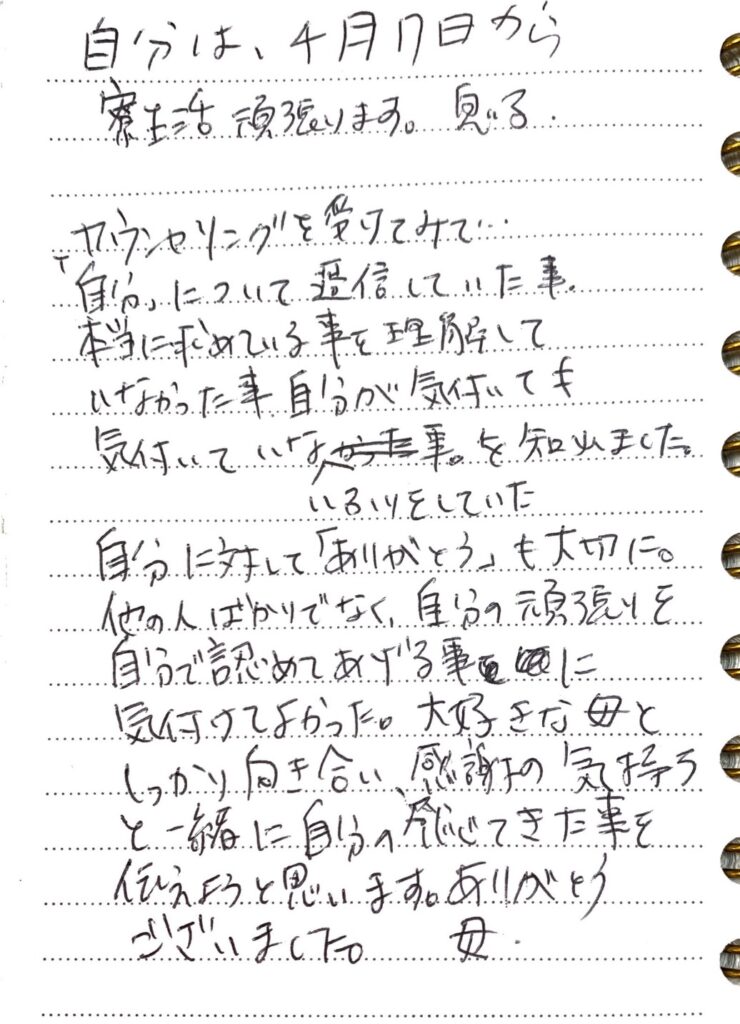 自分は、4月17日から
寮生活頑張ります。 息子.
カウンセリングを受けてみて…
「自分」について過信していた事、
本当に求めている事を理解して
いなかった事 自分が気付いても
気付いていな 事。を知れました。
いるふりをしていた
自分に対して「ありがとう」も大切に。
他の人ばかりでなく、自分の頑張りを
自分で認めてあげる事 に
気付けてよかった。大好きな母と
しっかり向き合い、感謝の気持ち
と一緒に自分の感じてきた事を
伝えようと思います。ありがとう
ございました。 母.